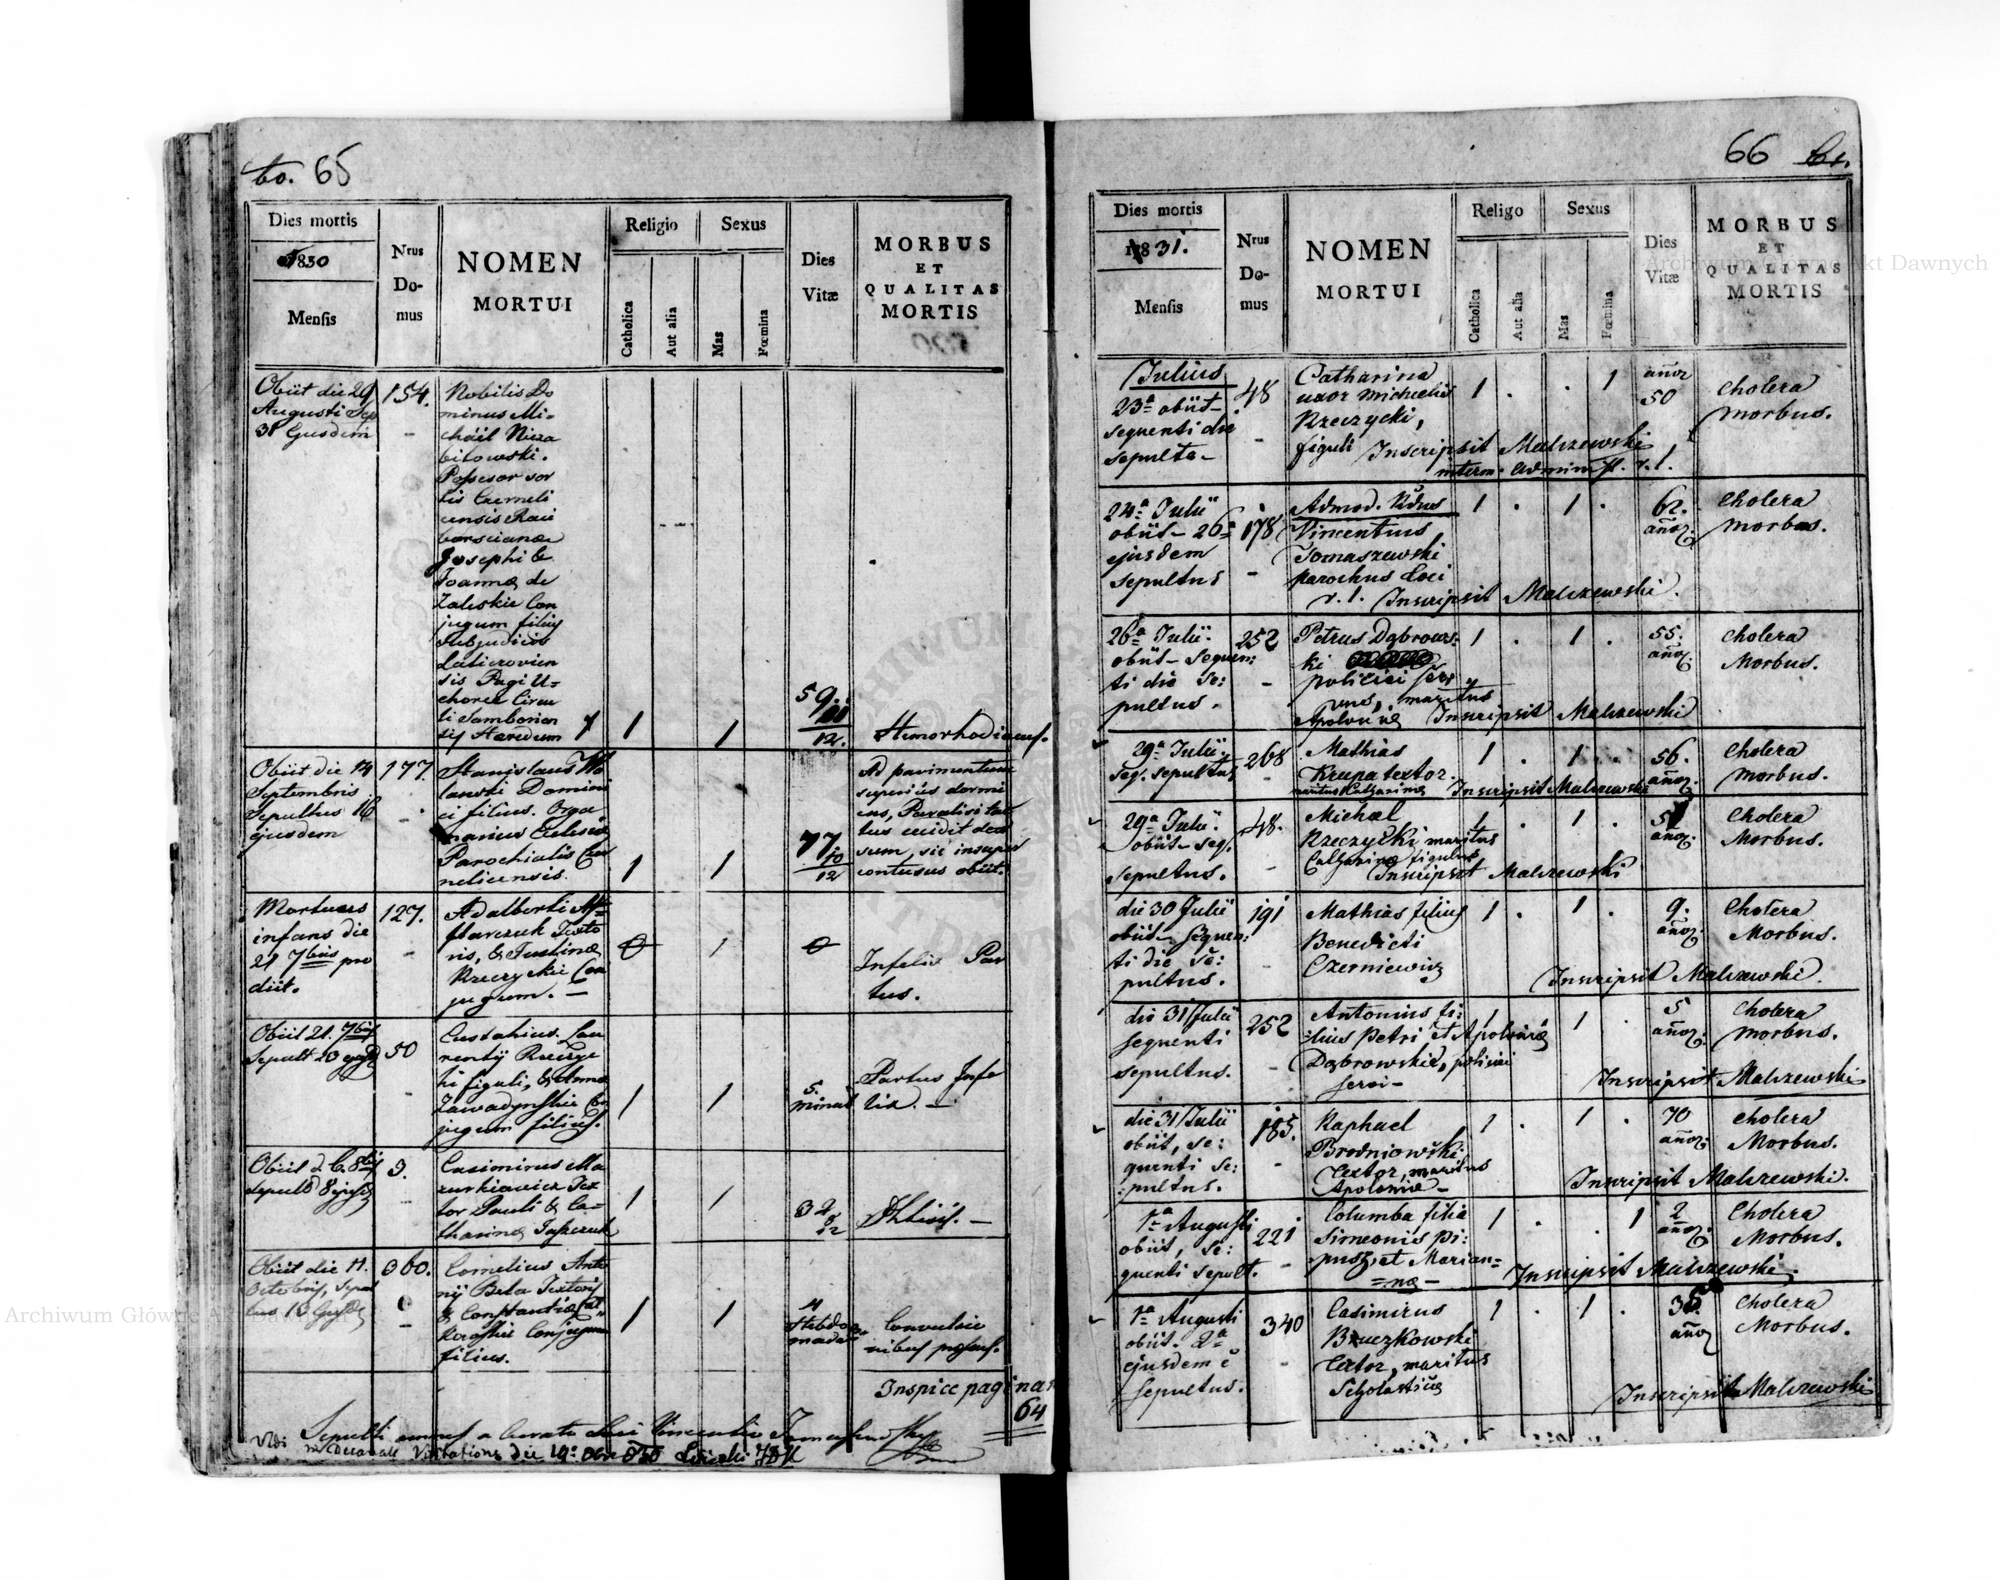 to. 65
Dies mortis
1830
Mensis
Nrus
Do-
mus
NOMEN
MORTUI
Religio
Catholica
Aut alia
Sexus
Mas
Fœmina
Dies
Vitæ
MORBUS
ET
QUALITAS
MORTIS
Obiit die 29
Augusti Sep
31 Ejusdem
154.
Nobilis Do
minus Mi-
chaël Nieza
bitowski.
Possesor sor
tis
Josephi &
Joannæ de
Zaleskie Con
jugum filius
Subjudicis
sis Pagi U-
Circu
li Samborien
sis Hæredum
1
1
59.
11
12.
Hemorhodiam.
Obiit die 14
Septembris
Sepultus 16
ejusdem
177.
Stanislaus
Domini
ci filius. Orga
narius Ecclesiæ
Parochialis
1
1
77
10
12
Ad pavimentum
superius dormi
ens, Paralisi tac
tus cecidit deor
sum, sic insuper
contusus obiit.
Mortuus
infans die
21 7bris pro
diit.
127.
Adalberti
Texto
ris, & Justinæ
Rzeczyckie Con
jugum. —
0
1
0
Infelix Par
tus.
Obiit 21. 7bris
Sepult 23 ejusd
50
Eustachius Lau
rentij Rzeczyc
ki figuli, & Annæ
Con
jugum filius.
1
1
5.
minut
Partus Infe
lix. —
Obiit d 6. 8bris
Sepult d 8 ejusd
Casimirus Ma
zurkiewicz Tex
tor Pauli & Ca-
tharinæ
1
1
32
12
Phtisis. —
Obiit die 11.
Octobris, Sepul
tus 13 Ejusd
360.
Cornelius Anto
nij Bela Textoris
& Constantiæ
Conjugum
filius.
1
1
4
Hebdo
madar
Convulsio
nibus
Inspice paginam
64
Sepulti omnes a Curato Loci Vincentio Tomaszewski
Vidi
in Decanali Visitatione die 19
66
Dies mortis
1831.
Mensis
Nrus
Do-
mus
NOMEN
MORTUI
Religo
Catholica
Aut alia
Sexus
Mas
Fœmina
Dies
Vitæ
MORBUS
ET
QUALITAS
MORTIS
Julius
23a obiit
sequenti die
sepulta-
48
Catharina
uxor Michaelis
Rzeczycki,
figuli Inscripsit Malczewski
interm. administ. r. l.
1 . . 1
50
Cholera
morbus.
24a Julii
obiit- 26a
ejusdem
sepultus
178
Admod. Rdus
Vincentius
Tomaszewski
parochus Loci
r. l. Inscripsit Malczewski.
1 . 1 .
62.
Cholera
morbus.
26a Julii
obiit- sequen:
ti die se:
pultus.
252
Petrus Dąbrows:
ki
policiei ser
vus, maritus
Apoloniæ Inscripsit Malczewski
1 . 1 .
55.
Cholera
Morbus.
29a Julii
seq. sepultus
268
Mathias
Krupa textor.
maritus Catharinæ Inscripsit Malczewski
1 . 1 .
56.
Cholera
morbus.
29a Julii
obiit- seq.
sepultus.
48.
Michael
Rzeczycki maritus
Catharinæ figulus
Inscripsit Malczewski
1 . 1 .
Cholera
Morbus.
die 30 Julii
obiit- sequen:
ti die se:
pultus.
191
Mathias filius
Benedicti
Czerniewicz
Inscripsit Malczewski.
1 . 1 .
9.
Cholera
Morbus.
die 31 Julii
sequenti
sepultus.
252
Antonius fi:
:lius Petri et Apoloniæ
Dąbrowskie, policiei
servi-
Inscripsit Malczewski
1 . 1 .
5
Cholera
morbus.
die 31 Julii
obiit, se:
quenti se:
:pultus.
185.
Raphael
Brodniowski
Textor, maritus
Apoloniæ-
Inscripsit Malczewski.
1 . 1 .
70
Cholera
Morbus.
1a Augusti
obiit, se:
quenti sepult.
221
Columba filia
Simeonis
et Marian=
=næ-
Inscripsit Malczewski.
1 . . 1
2
Cholera
Morbus.
1a Augusti
obiit. 2a
ejusdem
sepultus.
340
Casimirus
Textor, maritus
Scholasticæ
Inscripsit Malczewski
1 . 1 .
Cholera
Morbus.
Archiwum Główne Akt Dawnych
Archiwum Główne Akt Dawnych